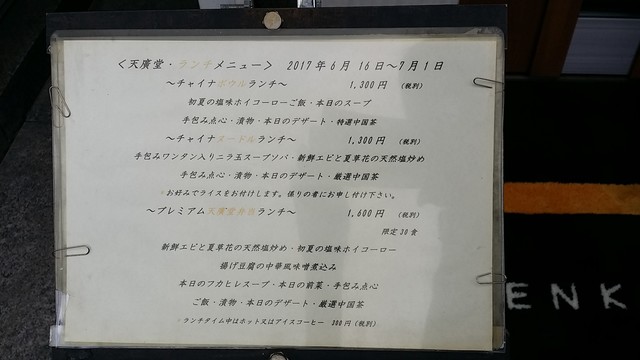 ＜天廣堂・ランチメニュー＞ 2017年6月16日～7月1日
～チャイナボウルランチ～ 1,300円 (税別)
初夏の塩味ホイコーローご飯・本日のスープ
手包み点心・漬物・本日のデザート・特選中国茶
～チャイナヌードルランチ～ 1,300円 (税別)
手包みワンタン入りニラ玉スープソバ・新鮮エビと夏草花の天然塩炒め
手包み点心・漬物・本日のデザート・厳選中国茶
※お好みでライスをお付けします。係りの者にお申し付け下さい。
～プレミアム天廣堂弁当ランチ～ 1,600円 (税別)
限定30食
新鮮エビと夏草花の天然塩炒め・初夏の塩味ホイコーロー
揚げ豆腐の中華風味噌煮込み
本日のフカヒレスープ・本日の前菜・手包み点心
ご飯・漬物・本日のデザート・厳選中国茶
※ランチタイム中はホット又はアイスコーヒー 300円(税別)
ENK